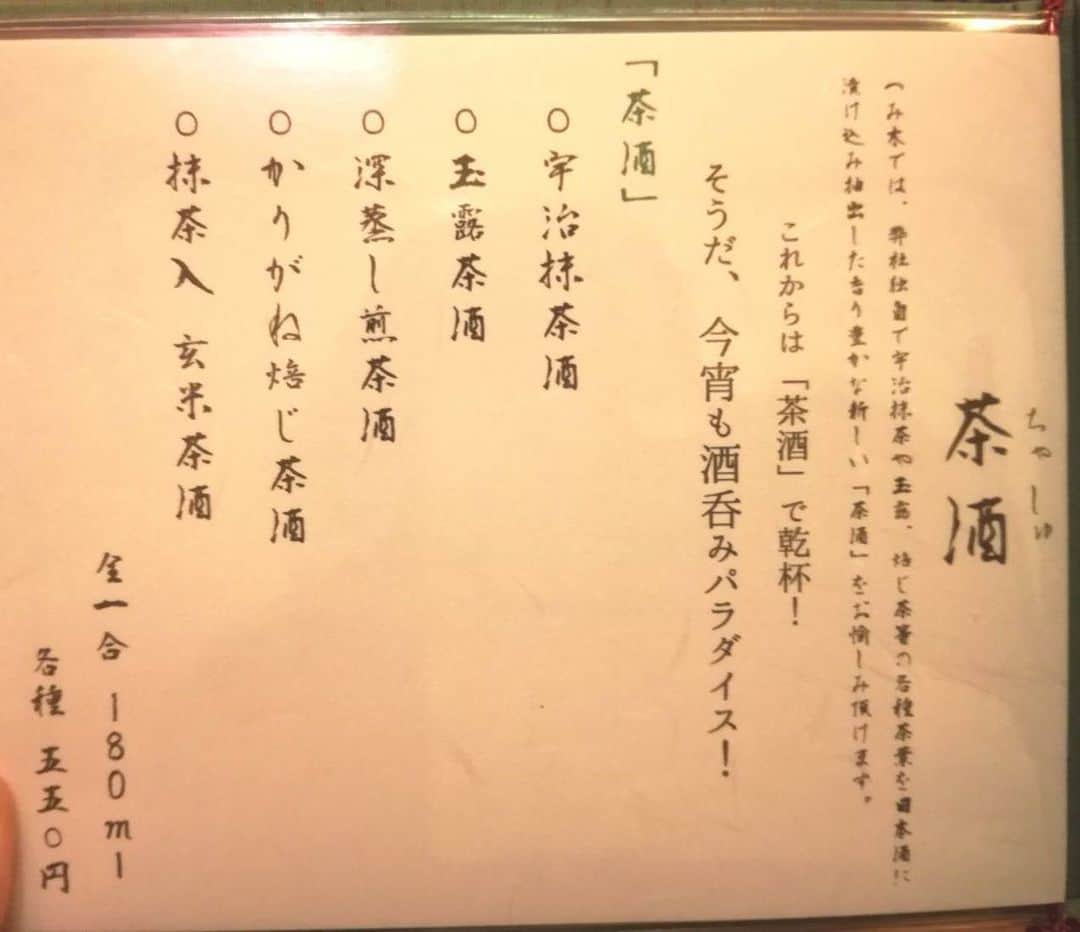 ちゃしゅ
茶酒
つみ木では、弊社独自で宇治抹茶や玉露、焙じ茶等の各種茶葉を日本酒に
漬け込み抽出した香り豊かな新しい「茶酒」をお愉しみ頂けます。
これからは「茶酒」で乾杯！
そうだ、今宵も酒呑みパラダイス！
「茶酒」
○宇治抹茶酒
○玉露茶酒
○深蒸し煎茶酒
○かりがね焙じ茶酒
○抹茶入 玄米茶酒
全一合 180ml
各種 五五〇円